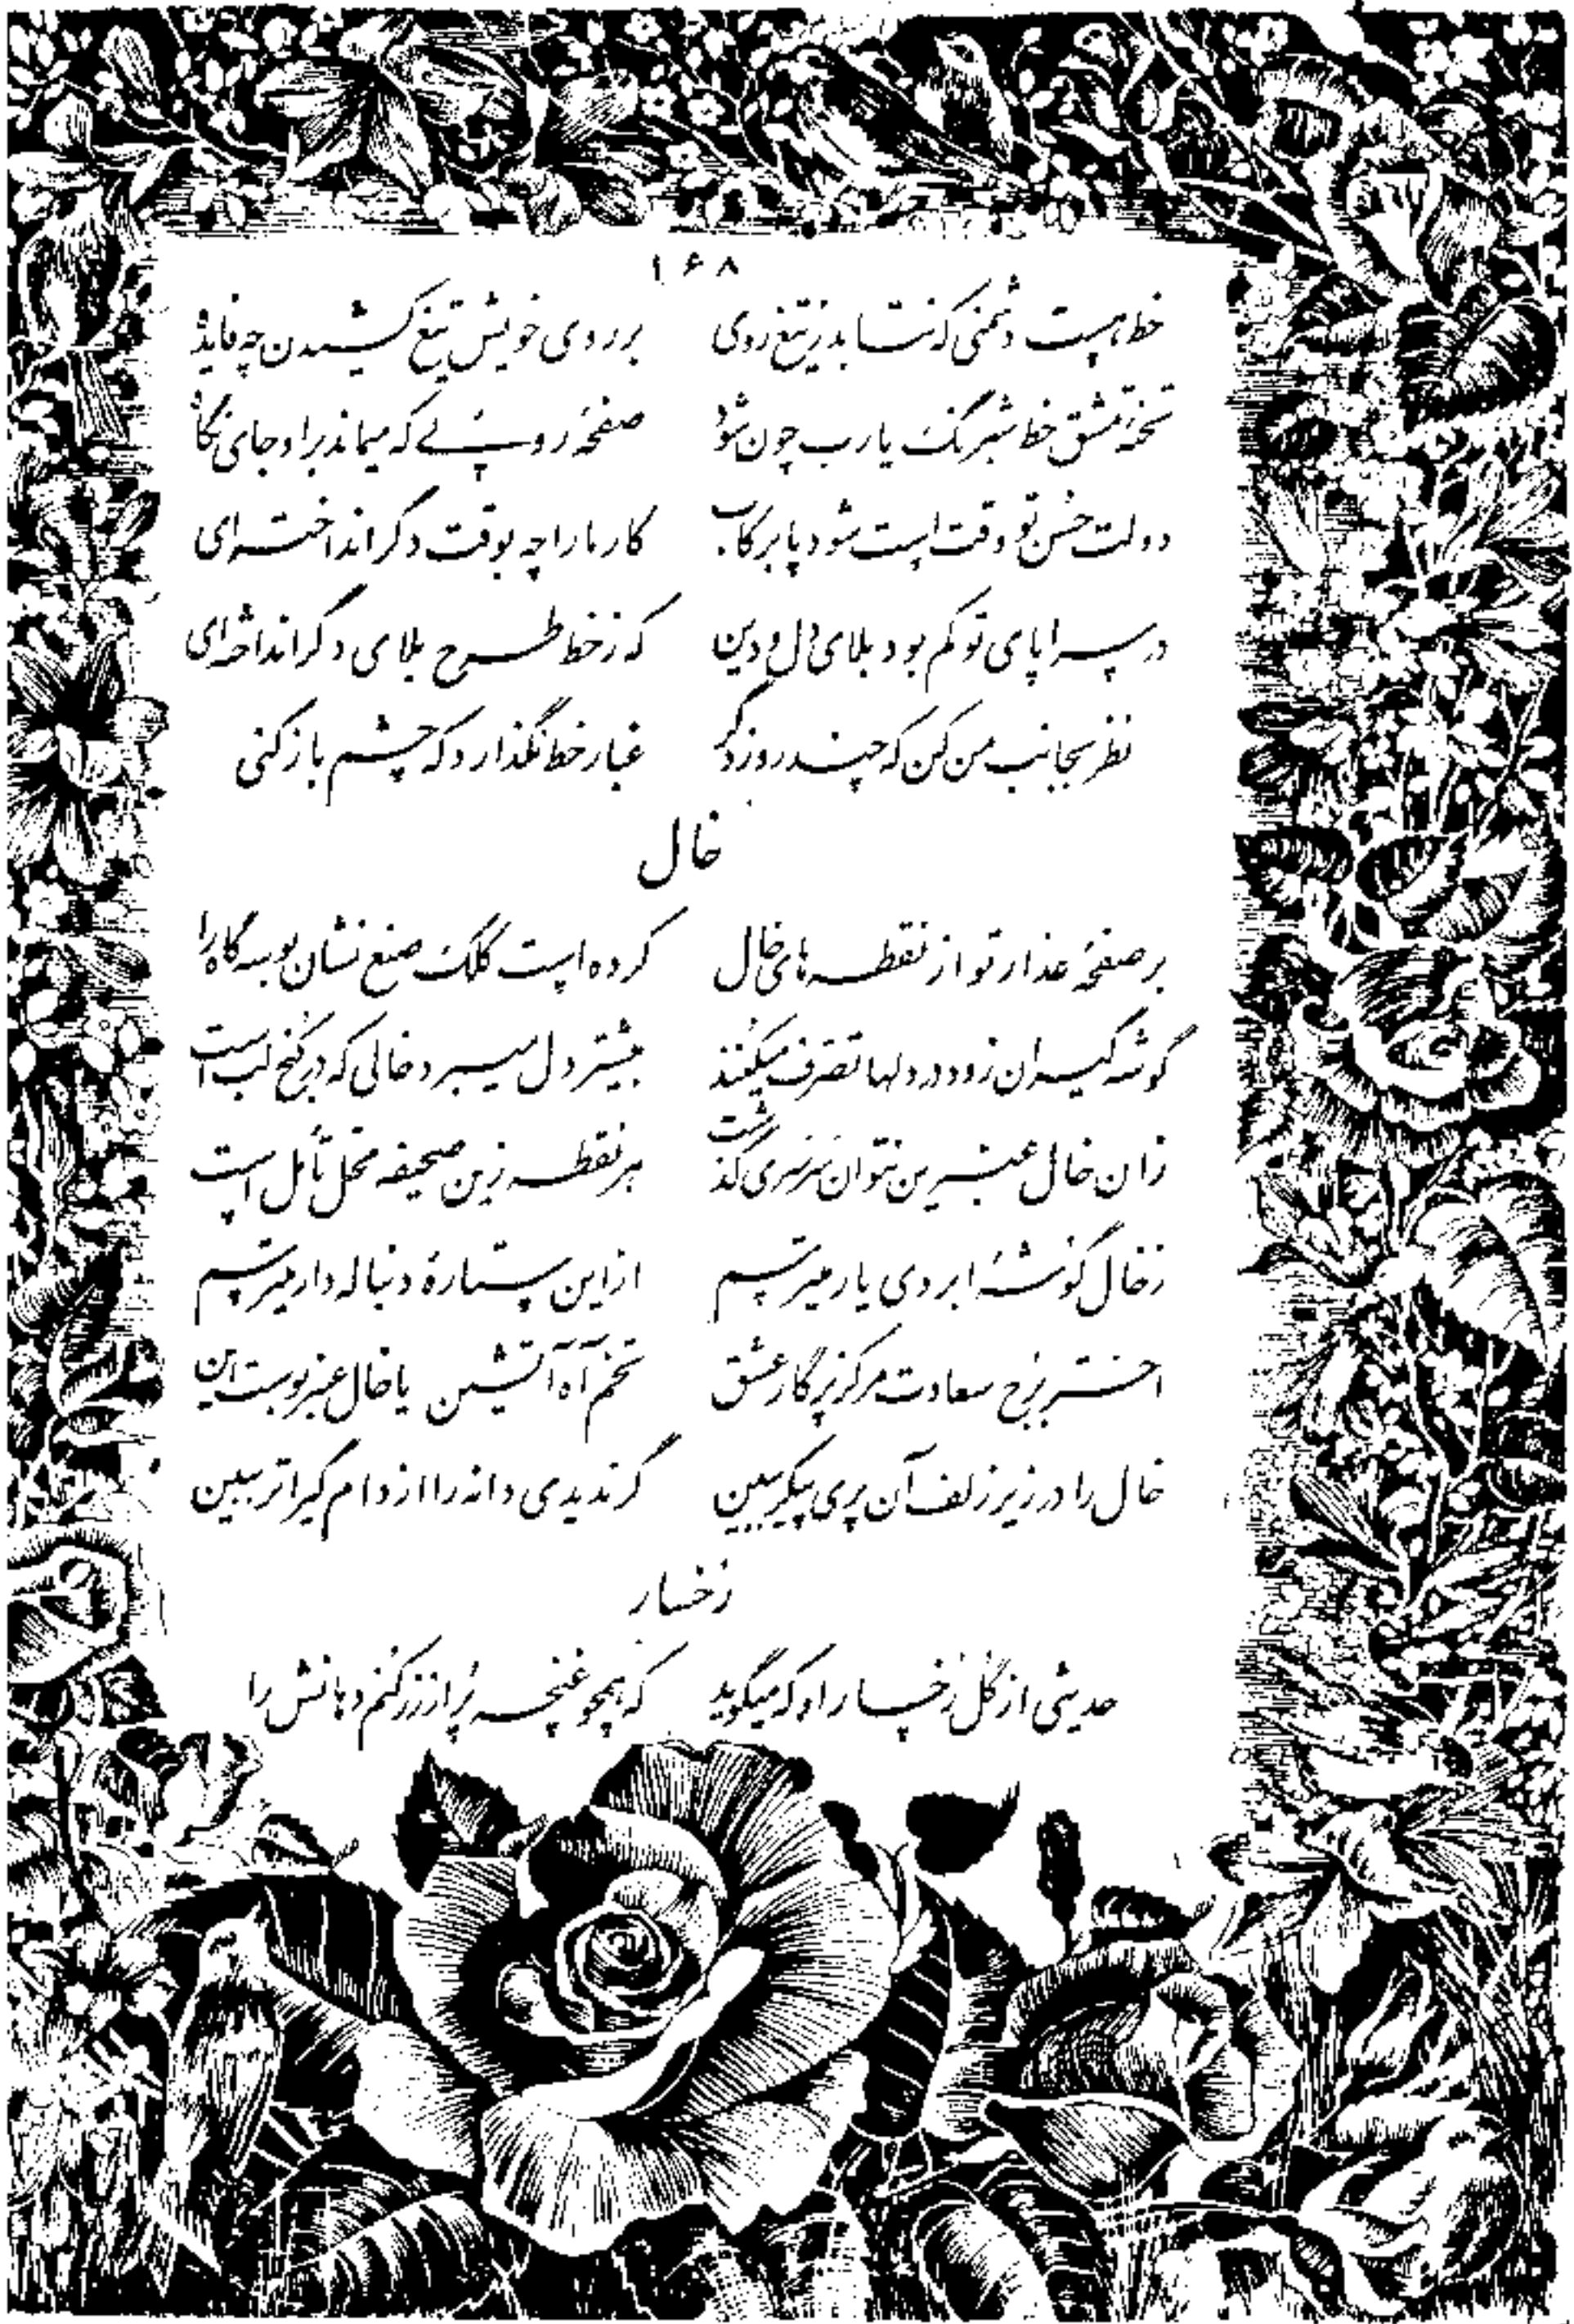 ۱۶۸
خط هست دشمنی که نتابد ز تیغ روی بر روی خویش تیغ کشیدن چه فایده
تختهٔ مشق خط شبرنگ یارب چون شود صفحهٔ رویی که میماند بر او جای نگاه
دولت حسن تو وقت است شود پا برکاب کار ما را چه بوقت دگر انداخته‌ای
در سراپای تو کم بود بلای دل و دین که ز خط طرح بلای دگر انداخته‌ای
نظر بجانب من کن که چند روز دگر غبار خط نگذارد که چشم باز کنی
خال
بر صفحهٔ عذار تو از نقطه‌های خال کرده است کلک صنع نشان بوسه‌گاه را
گوشه‌گیران زود در دلها تصرف میکنند بیشتر دل میبرد خالی که در کنج لب است
زان خال عنبرین نتوان سرسری گذشت هر نقطه زین صحیفه محل تأمل است
ز خال گوشهٔ ابروی یار میترسم از این ستارهٔ دنباله‌دار میترسم
اختر برج سعادت مرکز پرگار عشق تخم آه آتشین یا خال عنبربوست این
خال را در زیر زلف آن پری پیکر ببین گر ندیدی دانه را از دام گیراتر ببین
رخسار
حدیثی از گل رخسار او که میگوید که همچو غنچه پر از زر کنم دهانش را